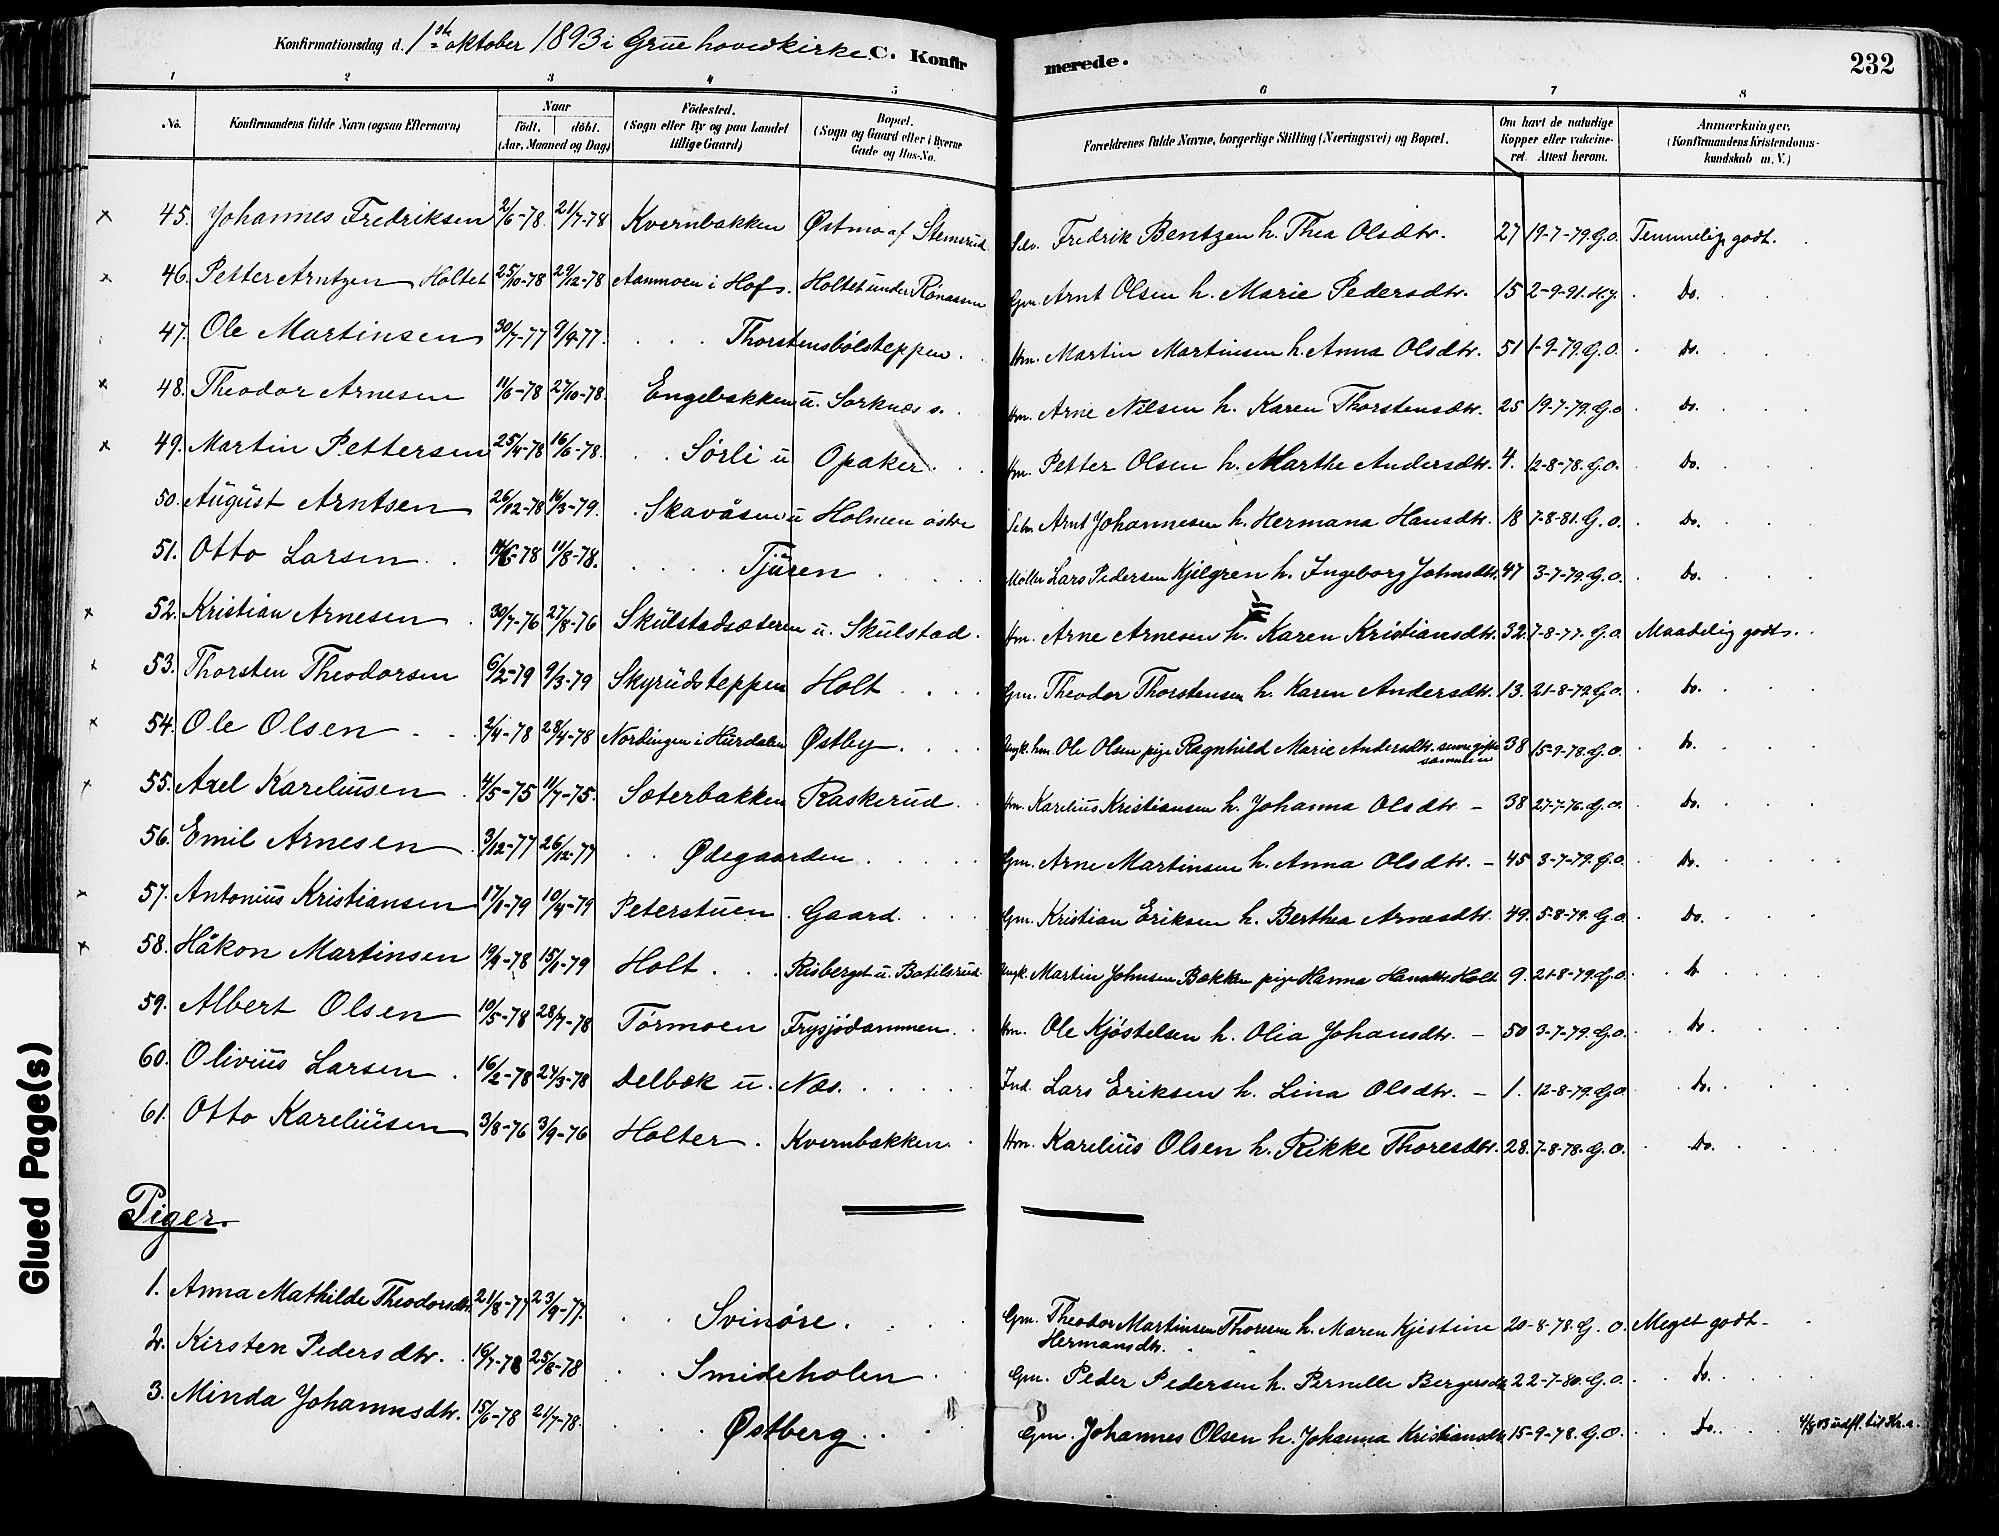 Konfirmationsdag d. 1ste oktober 1893 i Grue hovedkirke. C. Konfirmerede. 232
1 2 3 4 5 6 7 8
No. Konfirmandens fulde Navn (ogsaa Efternavn) Naar født. døbt. (Aar, Maaned og Dag) Fødested. (Sogn eller By og paa Landet tillige Gaard) Bopæl. (Sogn og Gaard eller i Byerne Gade og Hus-No. Forældrenes fulde Navne, borgerlige Stilling (Næringsvei) og Bopæl. Om havt de naturlige Kopper eller vakcineret. Attest herom. Anmærkninger. (Konfirmandens Kristendomskundskab m. V.)
× 45. Johannes Fredriksen 2/6-78 21/7-78 Kvernbakken Østmo af Stemsrud Selv. Fredrik Bentzen h. Thea Olsdtr. 27 19-7-79. G.O. Temmelig godt.
× 46. Petter Arntzen Holtet 25/10-78 29/12-78 Aamoen i Hof s. Holtet under Rönaasen Gm. Arnt Olsen h. Marie Pedersdtr. 15 2-9-91. H.J. Do.
47. Ole Martinsen 30/7-77 9/9-77. Thorstensbölsteppen. Hm. Martin Martinsen h. Anna Olsdtr. 51 1-9-79. G.O. Do.
× 48. Theodor Arnesen 11/6-78 27/10-78. Engebakken u. Sorknæs s. Hm. Arne Nilsen h. Karen Thorstensdtr. 25 19-7-79. G.O. Do.
× 49. Martin Pettersen 25/4-78 16/6-78. Sørli u Opaker. Hm. Petter Olsen h. Marthe Andersdtr. 4. 12-8-78. G.O. Do.
50. August Arntsen 26/12-78 16/3-79. Skavåsen u Holmen østre Selv. Arnt Johannesen h. Hermana Hansdtr. 18 7-8-81. G.O. Do.
51. Otto Larsen 14/6-78 11/8-78. Tjuren Møller Lars Pedersen Kjilgren h. Ingeborg Johnsdtr. 47 3-7-79. G.O. Do.
× 52. Kristian Arnesen 30/7-76 27/8-76 Skulstadsæteren u. Skulstad. Hm. Arne Arnesen h. Karen Kristiansdtr. 32. 7-8-77. G.O. Maadelig godt.
× 53. Thorsten Theodorsen 6/2-79 9/3-79 Skyrudsteppen Holt Gm. Theodor Thorstensen h. Karen Andersdtr. 13. 21-8-79 G.O. Do.
× 54. Ole Olsen 2/4-78 28/4-78 Nordingen i Hurdalen Østby. Ungk. hm. Ole Olsen pige Ragnhild Marie Andersdtr. senere gifte sammen 38 15-9-78. G.O. Do.
× 55. Axel Kareliusen 4/5-75 11/7-75. Sæterbakken Raskerud. Hm. Karelius Kristiansen h. Johanna Olsdtr - 38 27-7-76. G.O. Do.
56. Emil Arnesen 3/12-77 26/12-77 Ødegaarden Gm. Arne Martinsen h. Anna Olsdtr. - 45 3-7-79. G.O. Do.
× 57. Antonius Kristiansen 17/1-79 10/4-79 Peterstuen Gaard. Gm. Kristian Eriksen h. Berthea Arnesdtr. 49. 5-8-79. G.O. Do.
× 58. Håkon Martinsen 19/9-78 15/1-79 Holt. Risberget u. Batilsrud Ungk. Martin Johnsen Bakken pige Hanna Hansdtr Holt 9. 21-8-79. G.O. Do
59. Albert Olsen 10/5-78 28/7-78 Törmoen Frysjödammen. Hm. Ole Kjöstelsen h. Olia Johansdtr. - 50 3-7-79. G.O. Do.
60. Olivius Larsen. 16/2-78 24/3-78 Delbæk u. Næs. Ind. Lars Eriksen h. Lina Olsdtr. - 1. 12-8-79. G.O. Do.
61. Otto Kareliusen 3/8-76 3/9-76 Holter. Kvernbakken. Hm. Karelius Olsen h. Rikke Thoresdtr. 28. 7-8-78. G.O. Do.
Piger.
1. Anna Mathilde Theodorsdtr. 21/8-77 23/9-77. Svinöre. Gm. Theodor Martinsen Thoresen h. Maren Kjestine Hermansdtr. 20-8-78. G.O. Meget godt.
2. Kirsten Pedersdtr. 16/7-78 25/8-78 Smideholen Gm. Peder Pedersen h. Pernelle Bergersdtr 22-7-80. G.O. Do.
3. Minda Johannesdtr. 15/6-78 21/7-78. Østberg. Gm. Johannes Olsen h. Johanna Kristiansdtr 15-9-78. G.O. Do. 4/8 03 udfl. til Kr.a.
Glued Page(s)